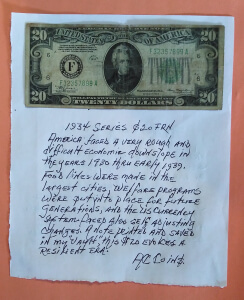 20
20
F 32357898 A
F
F 32357898 A
20
TWENTY DOLLARS
20
1934 SERIES $20 FRN
AMERICA FACED A VERY ROUGH AND
DIFFICULT ECONOMIC DOWNSLOPE IN
THE YEARS 1930 THRU EARLY 1939.
FOOD LINES WERE MADE IN THE
LARGEST CITIES, WELFARE PROGRAMS
WERE PUT INTO PLACE FOR FUTURE
GENERATIONS, AND THE US CURRENCY
SYSTEM FACED ALSO SELF ADJUSTING
CHANGES. A NOTE PRINTED AND SAVED
IN MY VAULT, THIS $20 EVOKES A
RESILIENT ERA!
Coins